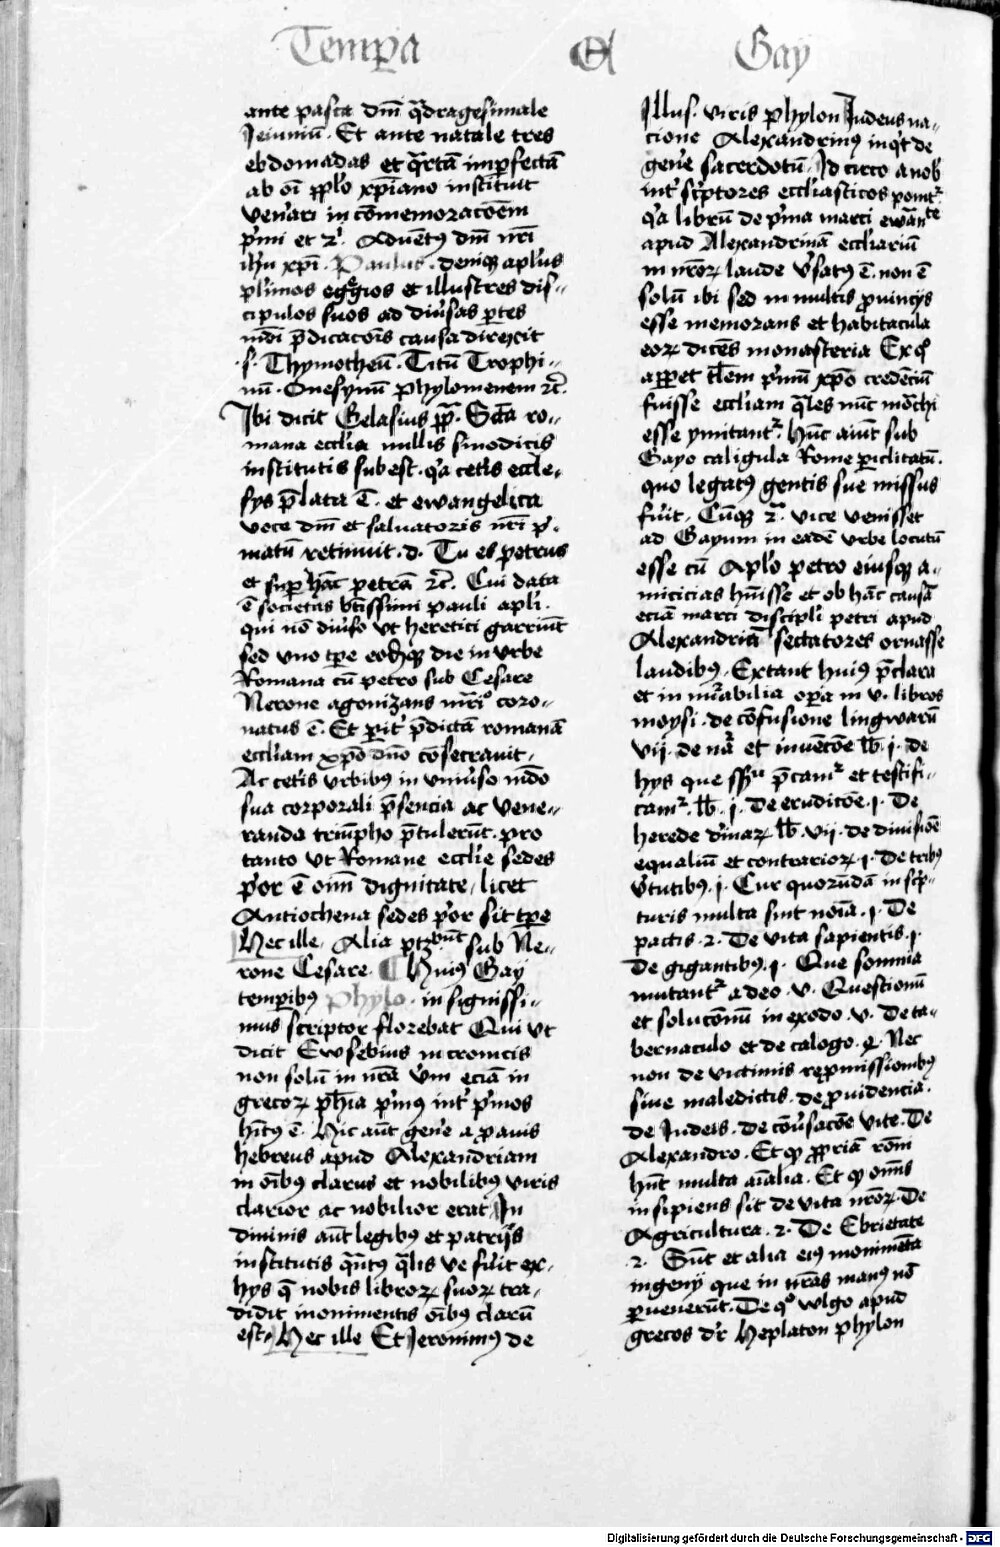 Temp̄a Et Gay
ante pasca dm̄ q̄dragesimale
Jeiuniū. Et ante natale tres
ebdomadas et q̄rtā imp̄fectā
ab oī pp̄lo xp̄iano instituit
ven̄ari in cōmemoracōem
p̄mi et 2ⁱ. Aduētꝰ dm̄ nr̄i
ihū xp̄i. Paulus. deniqꝫ apl'us
pl'imos eḡgios et illustres dis-
cipulos suos ad diu'sas p̄tes
mūdi p̄dicacōis causa direxit
.s. Thymotheū. Titū Trophi-
nū. Onesymū phylomenem ⁊c̄.
Ibi dicit Gelasius pp̄. Sc̄a ro-
mana eccl'ia nullis sinodicis
institutis subest. q̄a cet'is eccle-
sys p̄lata ē. et ewangelica
voce dm̄ et saluatoris nr̄i p̄-
matū retinuit. d. Tu es petrus
et sup̄ hāc petrā ⁊c̄. Cui data
ē societas bt̄issimi pauli apl'i.
qui nō diu'so vt heretici garriūt
sed vno tp̄e eodēqꝫ die in vrbe
Romana cū petro sub Cesare
Nerone agonizans mr̄io coro-
natus ē. Et p̄it' p̄dictā romanā
eccl'iam xp̄o dn̄o cōsecrauit.
Ac cet'is vrbibꝰ in vniu'so mūdo
sua corporali p̄sencia ac vene-
randa triūpho p̄tulerūt. pro
tanto vt Romane eccl'ie sedes
p'or ē oīm dignitate, licet
Antiochena sedes p'or sit tp̄e
Hec ille. Alia ptꝫbūt sub Ne-
rone Cesare. ¶ Huiꝰ Gay
temp̄ibꝰ Phylo. in signissi-
mus scriptor florebat Qui vt
dicit Ewsebius in cronicis
non solū in nr̄a v̄m eciā in
grecoꝝ ph̄ia p'mꝰ int' p'mos
hītꝰ ē. Hic aūt gen'e a pauis
hebreus apud Alexandriam
in oībꝰ clarus et nobilibꝰ viris
clarior ac nobilior erat In
diuinis aūt legibꝰ et patrijs
institutis q̄ntꝰ q̄lis ve fu'it ex-
hys q̄ nobis libroꝝ suoꝝ tra-
didit monimentis oībꝰ clarū
est. Hec ille Et Jeronimꝰ de
Illus. viris phylon Judeus na-
cione Alexandrinꝰ inq't de
gen'e sacerdotū. Id circo a nob'
int' sc'ptores eccl'iasticos ponit'
q'a librū de p'ma marci ewante
apud Alexandrinā eccl'iariū
in nr̄oꝝ laude v'satꝰ ē. non ē
solū ibi sed in multis prouincijs
esse memorans et habitacula
eoꝝ dicēs monasteria Ex q̊
apparet tl̄em p'mū xp̄o credēciū
fuisse eccl'iam q̄les nūc mōchi
esse ymitant'. Hūc aiūt sub
Gayo caligula Rome p̄iclitatū.
quo legatꝰ gentis sue missus
fu'it. Cūqꝫ 2ᵃ. vice venisset
ad Gayum in eadē vrbe locutū
esse cū Apl'o petro eiusqꝫ a-
micicias hūisse et ob hāc causā
eciā marci discipl'i petri apud
Alexandriā sectatores ornasse
laudibꝰ. Extant huiꝰ p̄clara
et in mī'abilia op̄a in v. libros
moysi. de cōfusione lingwarū
vij. de nā' et inuēcōe lb̄. j. de
hys que ssū p̄cam' et testifi-
cam'. lb̄. j. De erudicōe. j. De
herede d'inaꝝ lb̄. vij. de diuisiōe
equaliū et contrarioꝝ. j. De tribꝰ
v'tutibꝰ. j. Cur quorūdā in sc'p-
turis multa sint noīa. j. De
pactis. 2. De vita sapientis. j.
De gigantibꝰ. j. Que somnia
mutant' a deo. v. Questionū
et solucōnū in exodo. v. De ta-
bernaculo et de calogo. 4. Nec
non de victimis repromissionibꝰ
siue maledictis. de prouidencia.
de Judeis. de cōu'sacōe vite. De
Alexandro. Et qꝫ propriā rōm
hn̄t multa aīalia. Et qꝫ om̄is
insipiens sit de vita nr̄oꝝ. De
Agricultura. 2. De Ebrietate
.2. Sūt et alia eiꝰ monimēta
ingenij que in nr̄as manꝰ nō
p̄uenerūt. De q̊ wlgo apud
grecos d'r Heplaton phylon
Digitalisierung gefördert durch die Deutsche Forschungsgemeinschaft - DFG